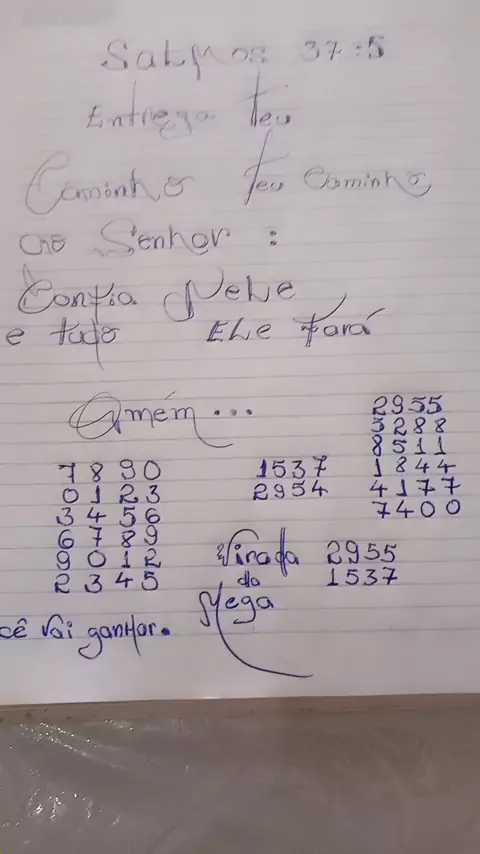 Salmos 37:5
Entrega teu
Caminho teu Caminho
ao Senhor :
Confia Nele
e tudo Ele fará
Amém...
7890
0123
3456
6789
9012
2345
1537
2954
2955
3288
8511
1844
4177
7400
Virada 2955
da 1537
Mega
cê vai ganhar.